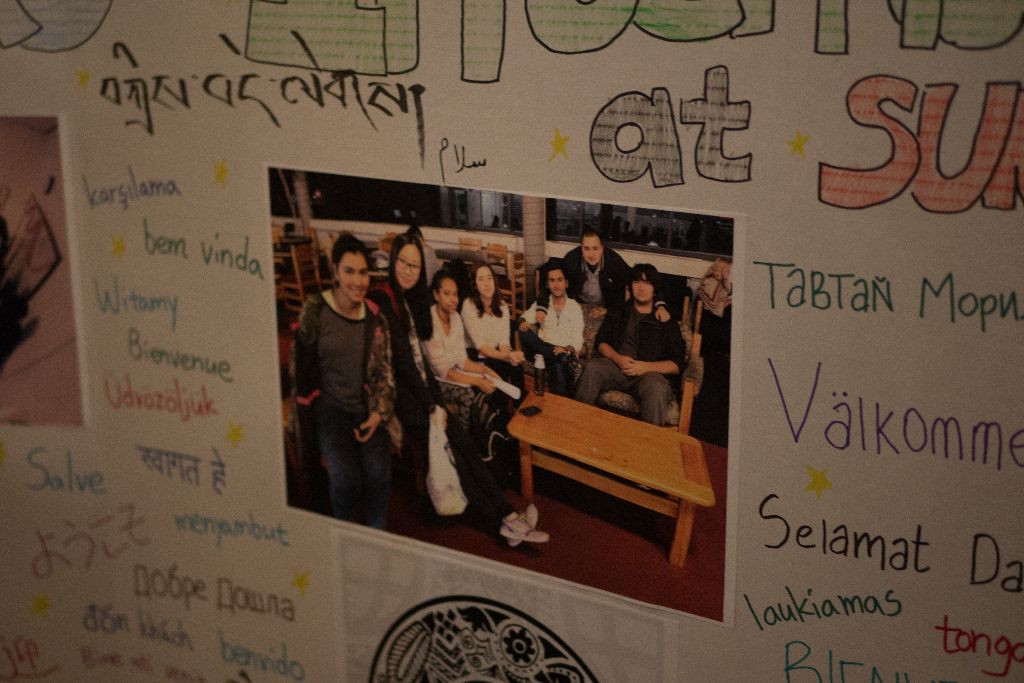 at SUN
བཀྲ་ཤིས་བདེ་ལེགས།
سلام
karşılama
bem vinda
Witamy
Bienvenue
Üdvözöljük
Salve
स्वागत हे
ようこそ
menyambut
Добре Дошла
đón khách
benvido
Тавтай Мори
Välkomme
Selamat Da
laukiamas
tongo
BIENVE